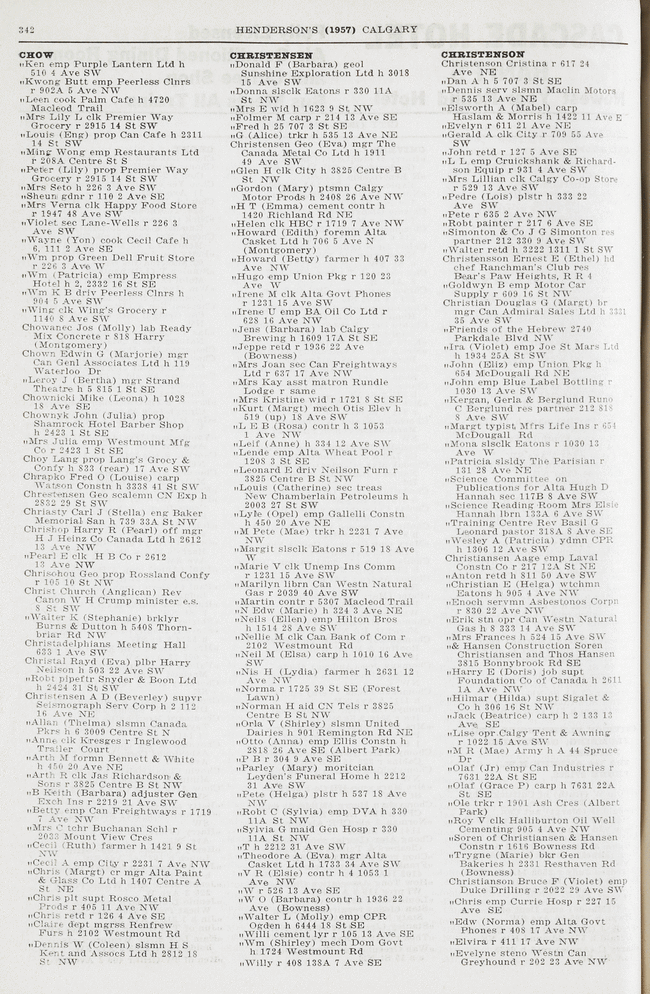 342
HENDERSON'S (1957) CALGARY
CHOW
„Ken emp Purple Lantern Ltd h
510 4 Ave SW
„Kwong Butt emp Peerless Clnrs
r 902A 5 Ave NW
„Leen cook Palm Cafe h 4720
Macleod Trail
„Mrs Lily L clk Premier Way
Grocery r 2915 14 St SW
„Louis (Eng) prop Can Cafe h 2311
14 St SW
„Ming Wong emp Restaurants Ltd
r 208A Centre St S
„Peter (Lily) prop Premier Way
Grocery r 2915 14 St SW
„Mrs Seto h 226 3 Ave SW
„Sheun gdnr r 110 2 Ave SE
„Mrs Verna clk Happy Food Store
r 1947 48 Ave SW
„Violet sec Lane-Wells r 226 3
Ave SW
„Wayne (Yon) cook Cecil Cafe h
6, 111 2 Ave SE
„Wm prop Green Dell Fruit Store
r 226 3 Ave W
„Wm (Patricia) emp Empress
Hotel h 2, 2332 16 St SE
„Wm K B driv Peerless Clnrs h
904 5 Ave SW
„Wing clk Wing's Grocery r
1140 8 Ave SW
Chowanec Jos (Molly) lab Ready
Mix Concrete r 818 Harry
(Montgomery)
Chown Edwin G (Marjorie) mgr
Can Genl Associates Ltd h 119
Waterloo Dr
„Leroy J (Bertha) mgr Strand
Theatre h 5 815 1 St SE
Chownicki Mike (Leona) h 1028
18 Ave SE
Chownyk John (Julia) prop
Shamrock Hotel Barber Shop
h 2423 1 St SE
„Mrs Julia emp Westmount Mfg
Co r 2423 1 St SE
Choy Lang prop Lang's Grocy &
Confy h 833 (rear) 17 Ave SW
Chrapko Fred O (Louise) carp
Watson Constn h 3338 41 St SW
Chrestensen Geo scalemn CN Exp h
2832 29 St SW
Chriasty Carl J (Stella) eng Baker
Memorial San h 739 33A St NW
Chrishop Harry R (Pearl) off mgr
H J Heinz Co Canada Ltd h 2612
13 Ave NW
„Pearl E clk H B Co r 2612
13 Ave NW
Chrisohou Geo prop Rossland Confy
r 105 10 St NW
Christ Church (Anglican) Rev
Canon W H Crump minister e.s.
8 St SW
„Walter K (Stephanie) brklyr
Burns & Dutton h 5408 Thorn-
briar Rd NW
Christadelphians Meeting Hall
633 1 Ave SW
Christal Rayd (Eva) plbr Harry
Neilson h 503 22 Ave SW
„Robt pipeftr Snyder & Boon Ltd
h 2424 31 St SW
Christensen A D (Beverley) supvr
Seismograph Serv Corp h 2 112
16 Ave NE
„Allan (Thelma) slsmn Canada
Pkrs h 6 3009 Centre St N
„Anne clk Kresges r Inglewood
Trailer Court
„Arth M formn Bennett & White
h 450 20 Ave NE
„Arth R clk Jas Richardson &
Sons r 3825 Centre B St NW
„B Keith (Barbara) adjuster Gen
Exch Ins r 2219 21 Ave SW
„Betty emp Can Freightways r 1719
7 Ave NW
„Mrs C tchr Buchanan Schl r
2033 Mount View Cres
„Cecil (Ruth) farmer h 1421 9 St
NW
„Cecil A emp City r 2231 7 Ave NW
„Chris (Margt) cr mgr Alta Paint
& Glass Co Ltd h 1407 Centre A
St NE
„Chris plt supt Rosco Metal
Prods r 405 11 Ave NW
„Chris retd r 126 4 Ave SE
„Claire dept mgrss Renfrew
Furs h 2102 Westmount Rd
„Dennis W (Coleen) slsmn H S
Kent and Assocs Ltd h 2812 18
St NW
CHRISTENSEN
„Donald F (Barbara) geol
Sunshine Exploration Ltd h 3018
15 Ave SW
„Donna slsclk Eatons r 330 11A
St NW
„Mrs E wid h 1623 9 St NW
„Folmer M carp r 214 13 Ave SW
„Fred h 25 707 3 St SE
„G (Alice) trkr h 535 13 Ave NE
Christensen Geo (Eva) mgr The
Canada Metal Co Ltd h 1911
49 Ave SW
„Glen H clk City h 3825 Centre B
St NW
„Gordon (Mary) ptsmn Calgy
Motor Prods h 2408 26 Ave NW
„H T (Emma) cement contr h
1420 Richland Rd NE
„Helen clk HBC r 1719 7 Ave NW
„Howard (Edith) foremn Alta
Casket Ltd h 706 5 Ave N
(Montgomery)
„Howard (Betty) farmer h 407 33
Ave NW
„Hugo emp Union Pkg r 120 23
Ave W
„Irene M clk Alta Govt Phones
r 1231 15 Ave SW
„Irene U emp BA Oil Co Ltd r
628 16 Ave NW
„Jens (Barbara) lab Calgy
Brewing h 1609 17A St SE
„Jeppe retd r 1936 22 Ave
(Bowness)
„Mrs Joan sec Can Freightways
Ltd r 637 17 Ave NW
„Mrs Kay asst matron Rundle
Lodge r same
„Mrs Kristine wid r 1721 8 St SE
„Kurt (Margt) mech Otis Elev h
519 (up) 18 Ave SW
„L E B (Rosa) contr h 3 1053
1 Ave NW
„Leif (Anne) h 334 12 Ave SW
„Lende emp Alta Wheat Pool r
1208 3 St SE
„Leonard E driv Neilson Furn r
3825 Centre B St NW
„Louis (Catherine) sec treas
New Chamberlain Petroleums h
2003 27 St SW
„Lyle (Opel) emp Gallelli Constn
h 450 20 Ave NE
„M Pete (Mae) trkr h 2231 7 Ave
NW
„Margit slsclk Eatons r 519 18 Ave
W
„Marie V clk Unemp Ins Comm
r 1231 15 Ave SW
„Marilyn librn Can Westn Natural
Gas r 2039 40 Ave SW
„Martin contr r 5307 Macleod Trail
„N Edw (Marie) h 324 3 Ave NE
„Neils (Ellen) emp Hilton Bros
h 1514 28 Ave SW
„Nellie M clk Can Bank of Com r
2102 Westmount Rd
„Neil M (Elsa) carp h 1010 16 Ave
SW
„Nis H (Lydia) farmer h 2631 12
Ave NW
„Norma r 1725 39 St SE (Forest
Lawn)
„Norman H aid CN Tels r 3825
Centre B St NW
„Orla V (Shirley) slsmn United
Dairies h 901 Remington Rd NE
„Otto (Anna) emp Ellis Constn h
2818 26 Ave SE (Albert Park)
„P B r 304 9 Ave SE
„Parley (Mary) moritcian
Leyden's Funeral Home h 2212
31 Ave SW
„Pete (Helga) plstr h 537 18 Ave
NW
„Robt C (Sylvia) emp DVA h 330
11A St NW
„Sylvia G maid Gen Hosp r 330
11A St NW
„T h 2212 31 Ave SW
„Theodore A (Eva) mgr Alta
Casket Ltd h 1733 34 Ave SW
„V R (Elsie) contr h 4 1053 1
Ave NW
„W r 526 13 Ave SE
„W O (Barbara) contr h 1936 22
Ave (Bowness)
„Walter L (Molly) emp CPR
Ogden h 6444 18 St SE
„Willi cement lyr r 105 13 Ave SE
„Wm (Shirley) mech Dom Govt
h 1724 Westmount Rd
„Willy r 408 138A 7 Ave SE
CHRISTENSON
Christenson Cristina r 617 24
Ave NE
„Dan A h 5 707 3 St SE
„Dennis serv slsmn Maclin Motors
r 535 13 Ave NE
„Elsworth A (Mabel) carp
Haslam & Morris h 1422 11 Ave E
„Evelyn r 611 21 Ave NE
„Gerald A clk City r 709 55 Ave
SW
„John retd r 127 5 Ave SE
„L L emp Cruickshank & Richard-
son Equip r 931 4 Ave SW
„Mrs Lillian clk Calgy Co-op Store
r 529 13 Ave SW
„Pedre (Lois) plstr h 333 22
Ave SW
„Pete r 635 2 Ave NW
„Robt painter r 217 6 Ave SE
„Simonton & Co J G Simonton res
partner 212 330 9 Ave SW
„Walter retd h 3222 1311 1 St SW
Christensson Ernest E (Ethel) hd
chef Ranchman's Club res
Bear's Paw Heights, R R 4
„Goldwyn B emp Motor Car
Supply r 609 16 St NW
Christian Douglas G (Margt) br
mgr Can Admiral Sales Ltd h 3331
35 Ave SW
„Friends of the Hebrew 2740
Parkdale Blvd NW
„Ira (Violet) emp Joe St Mars Ltd
h 1934 25A St SW
„John (Eliz) emp Union Pkg h
654 McDougall Rd NE
„John emp Blue Label Bottling r
1030 13 Ave SW
„Kergan, Gerla & Berglund Runo
C Berglund res partner 212 818
8 Ave SW
„Margt typist Mfrs Life Ins r 654
McDougall Rd
„Mona slsclk Eatons r 1030 13
Ave W
„Patricia slsldy The Parisian r
131 28 Ave NE
„Science Committee on
Publications for Alta Hugh D
Hannah sec 117B 8 Ave SW
„Science Reading Room Mrs Elsie
Hannah lbrn 133A 6 Ave SW
„Training Centre Rev Basil G
Leonard pastor 318A 8 Ave SE
„Wesley A (Patricia) ydmn CPR
h 1306 12 Ave SW
Christiansen Aage emp Laval
Constn Co r 217 12A St NE
„Anton retd h 811 50 Ave SW
„Christian E (Helga) wtchmn
Eatons h 905 4 Ave NW
„Enoch servmn Asbestonos Corpn
r 830 22 Ave NW
„Erik stn opr Can Westn Natural
Gas h 8 333 14 Ave SW
„Mrs Frances h 524 15 Ave SW
„& Hansen Construction Soren
Christiansen and Thos Hansen
3815 Bonnybrook Rd SE
„Harry E (Doris) job supt
Foundation Co of Canada h 2611
1A Ave NW
„Hilmar (Hilda) supt Sigalet &
Co h 306 16 St NW
„Jack (Beatrice) carp h 2 133 13
Ave SE
„Lise opr Calgy Tent & Awning
r 1022 15 Ave SW
„M R (Mae) Army h A 44 Spruce
Dr
„Olaf (Jr) emp Can Industries r
7631 22A St SE
„Olaf (Grace P) carp h 7631 22A
St SE
„Ole trkr r 1901 Ash Cres (Albert
Park)
„Roy V clk Halliburton Oil Well
Cementing 905 4 Ave NW
„Soren of Christiansen & Hansen
Constn r 1616 Bowness Rd
„Trygne (Marie) bkr Gen
Bakeries h 2331 Resthaven Rd
(Bowness)
Christianson Bruce F (Violet) emp
Duke Drilling r 2022 29 Ave SW
„Chris emp Currie Hosp r 227 15
Ave SE
„Edw (Norma) emp Alta Govt
Phones r 408 17 Ave NW
„Elvira r 411 17 Ave NW
„Evelyne steno Westn Can
Greyhound r 202 23 Ave NW